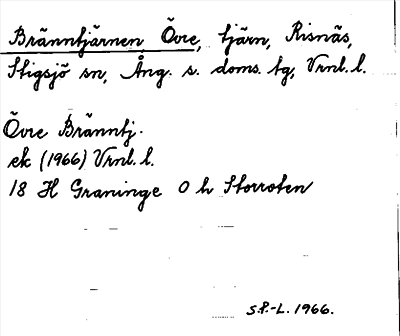 Bränntjärnen, Övre, tjärn, Risnäs,
Stigsjö sn, Ång. s. doms. tg, Vrnl. l.
Övre Bränntj.
ek (1966) Vrnl. l.
18 H Graninge 0 h Storroten
S.P.-L. 1966.